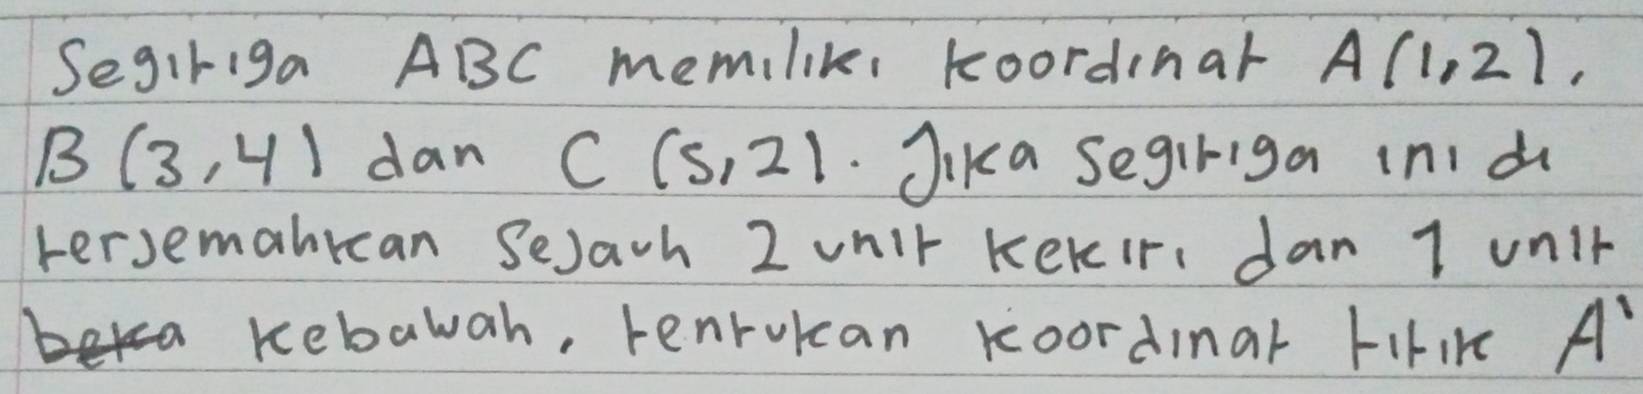 Segitiga ABC memiliki koordinat A(1,2),
B (3,4) dan C (5,2). Jika segitiga ini di
terjemahkan sejauh 2 unit kekiri dan 1 unit
beka kebawah, tentukan koordinat titik A'